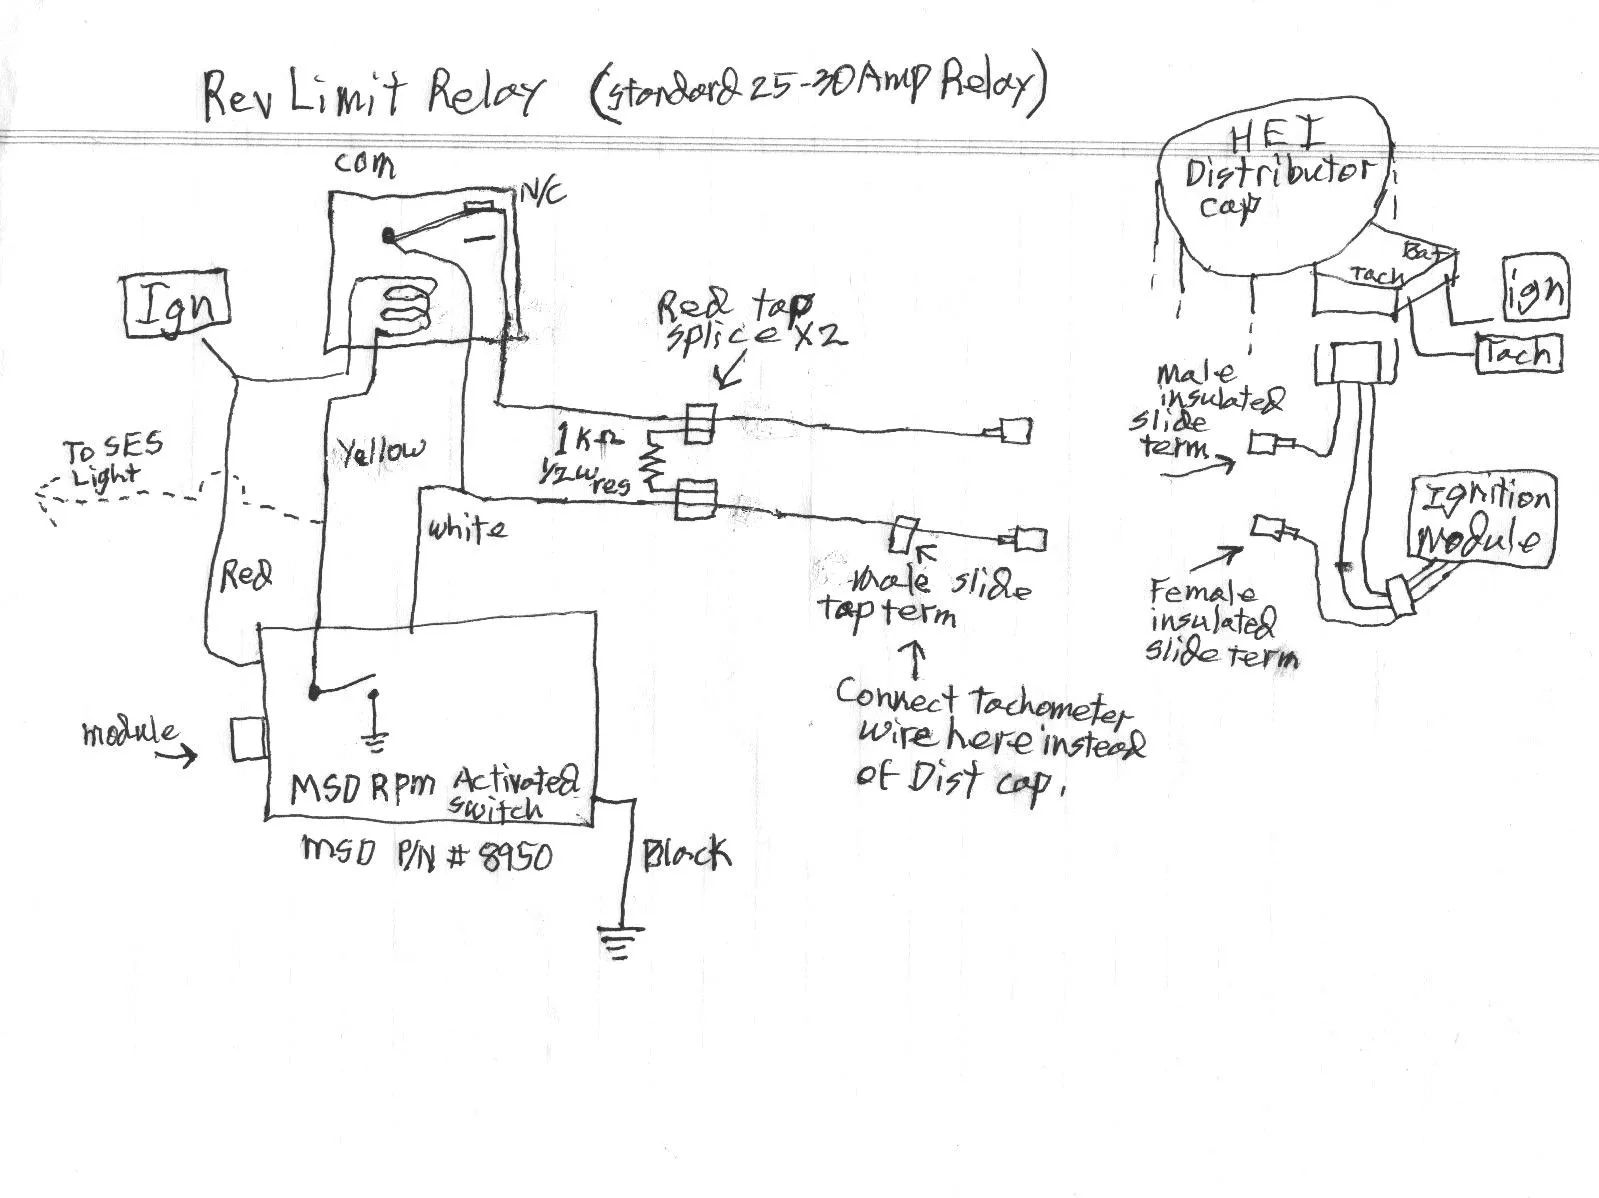 Rev Limit Relay (standard 25-30 Amp Relay)
com
N/C
Ign
Red tap
splice X2
To SES
Light
Yellow
1KΩ
1/2w
res
white
Red
male slide
tap term
Connect Tachometer
wire here instead
of Dist cap.
module
MSD RPM Activated
switch
MSD P/N # 8950
Black
HEI
Distributor
cap
Bat
Tach
ign
Tach
Male
insulated
slide
term
Ignition
Module
Female
insulated
slide term